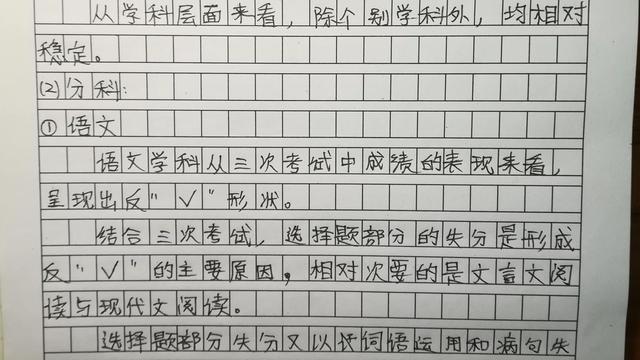 从学科层面来看，除个别学科外，均相对
稳定。
(2)分科：
①语文
语文学科从三次考试中成绩的表现来看，
呈现出反“√”形状。
结合三次考试，选择题部分的失分是形成
反“√”的主要原因，相对次要的是文言文阅
读与现代文阅读。
选择题部分失分又以词语运用和病句失